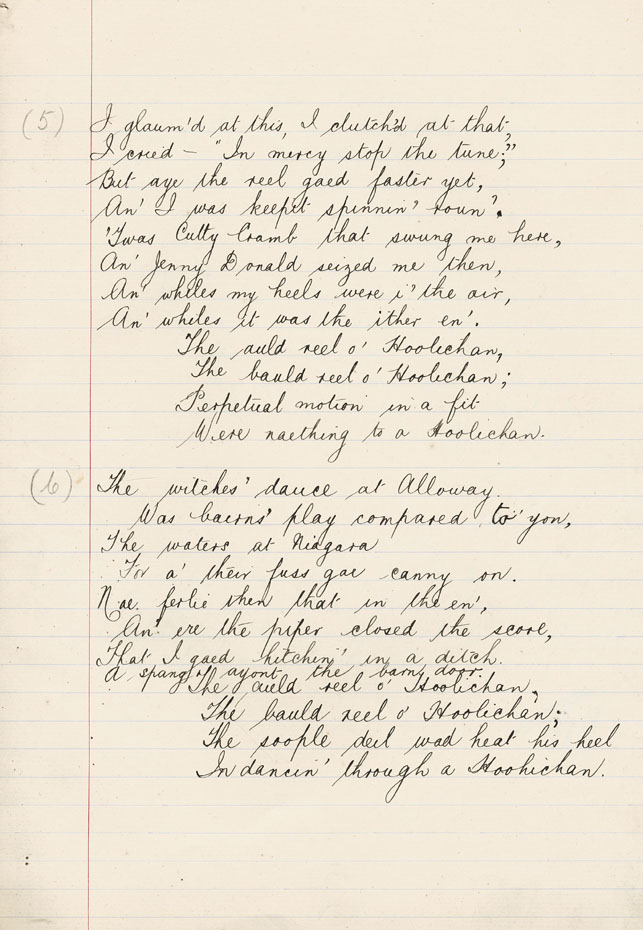 (5)
I glaum'd at this, I clutch'd at that,
I cried — "In mercy stop the tune;"
But aye the reel gaed faster yet,
An' I was keepit spinnin' roun'.
'Twas Cutty Cramb that swung me here,
An' Jenny Donald seized me then,
An' whiles my heels were i' the air,
An' whiles it was the ither en'.
The auld reel o' Hoolichan,
The bauld reel o' Hoolichan;
Perpetual motion in a fit
Were naething to a Hoolichan.
(6)
The witches' dance at Alloway
Was bairns' play compared to yon,
The waters at Niagara
For a' their fuss gae canny on.
Nae ferlie then that in the en',
An' ere the piper closed the score,
That I gaed hitchin' in a ditch
A spang ayont the barn door.
The auld reel o' Hoolichan,
The bauld reel o' Hoolichan;
The soople deil wad heat his heel
In dancin' through a Hoohichan.